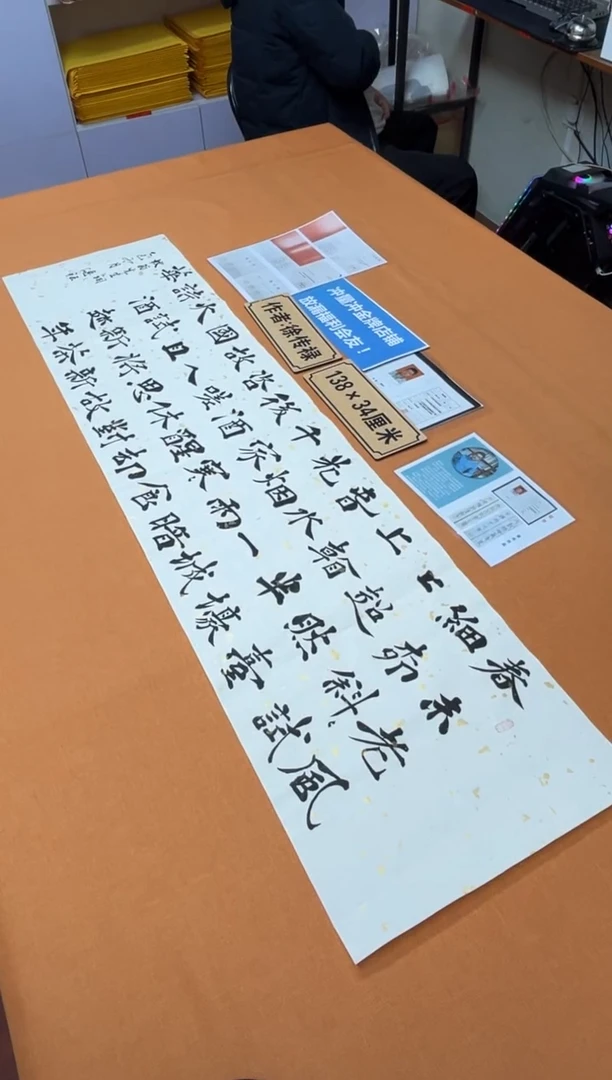 春未老風
細柳斜々試
上超然臺
上看半壕
春水一城
花烟雨暗
千家寒食
後酒醒却
咨嗟休對
故人思故
國且將新
火試新茶
詩酒趁年
華
冲量冲金牌店铺
放漏福利会友！
作者:徐传禄
138×34厘米